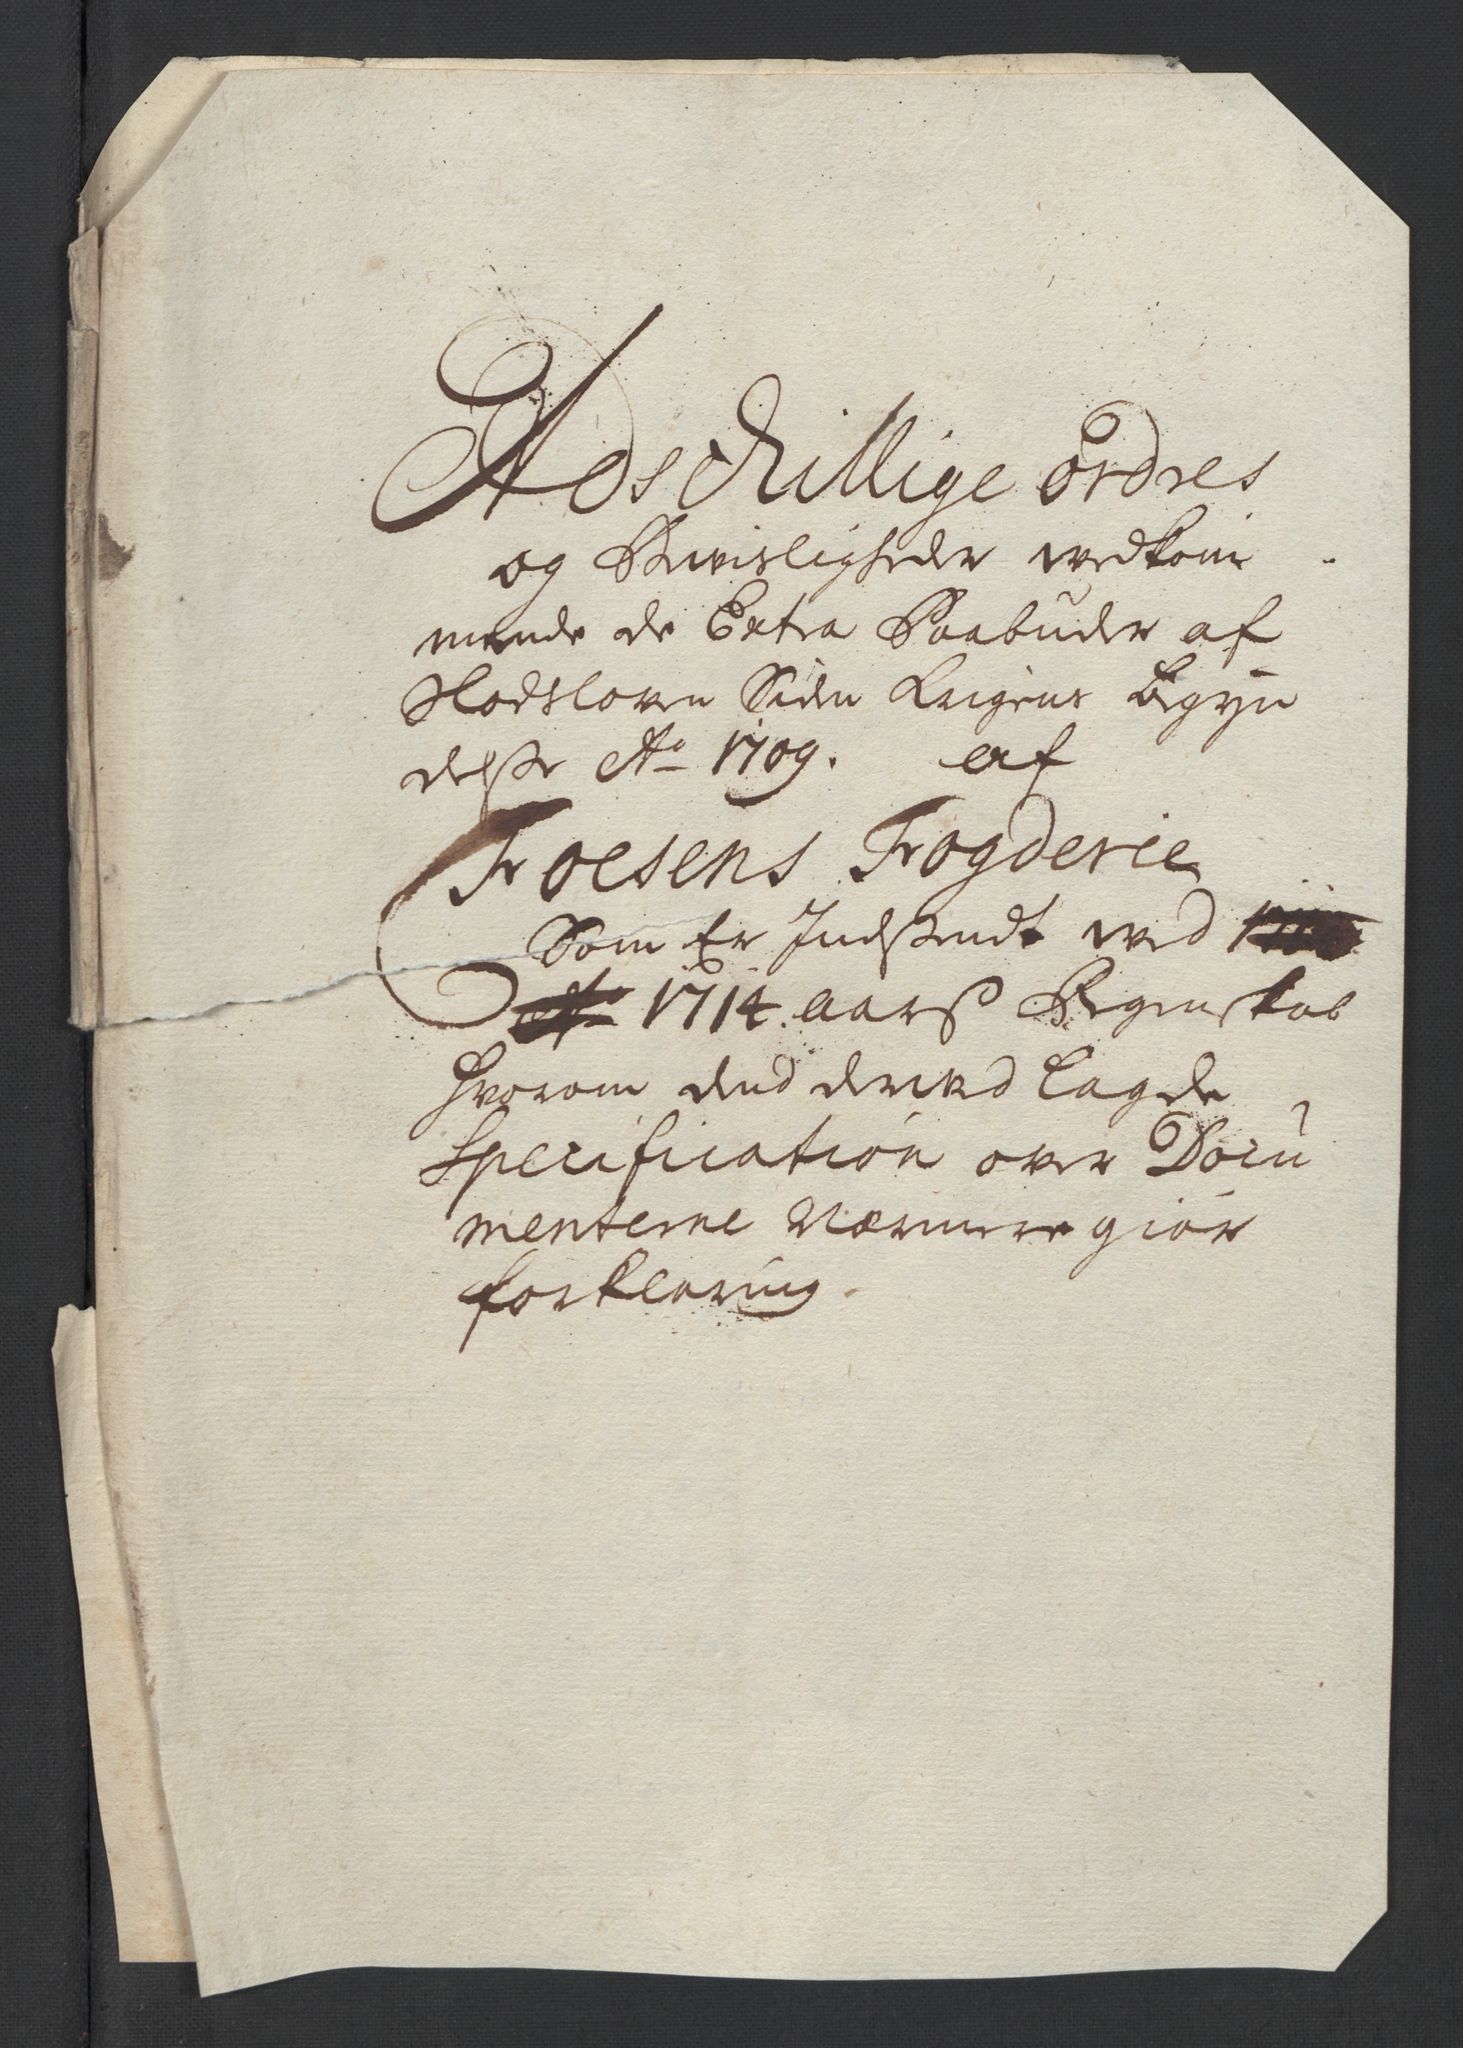 Adschillige Ordres
og Bevisligheder vedkom
mende de Extra Paabuder af
Slodsloven Siden Krigens Begyn
delse Ao 1709. af
Froesens Frogderie
Som Er Indsendt ved
1714 aars Regenskab
hvorom dend derved lagde
Specification over Docu
menterne Nærmere giør
forklaring.